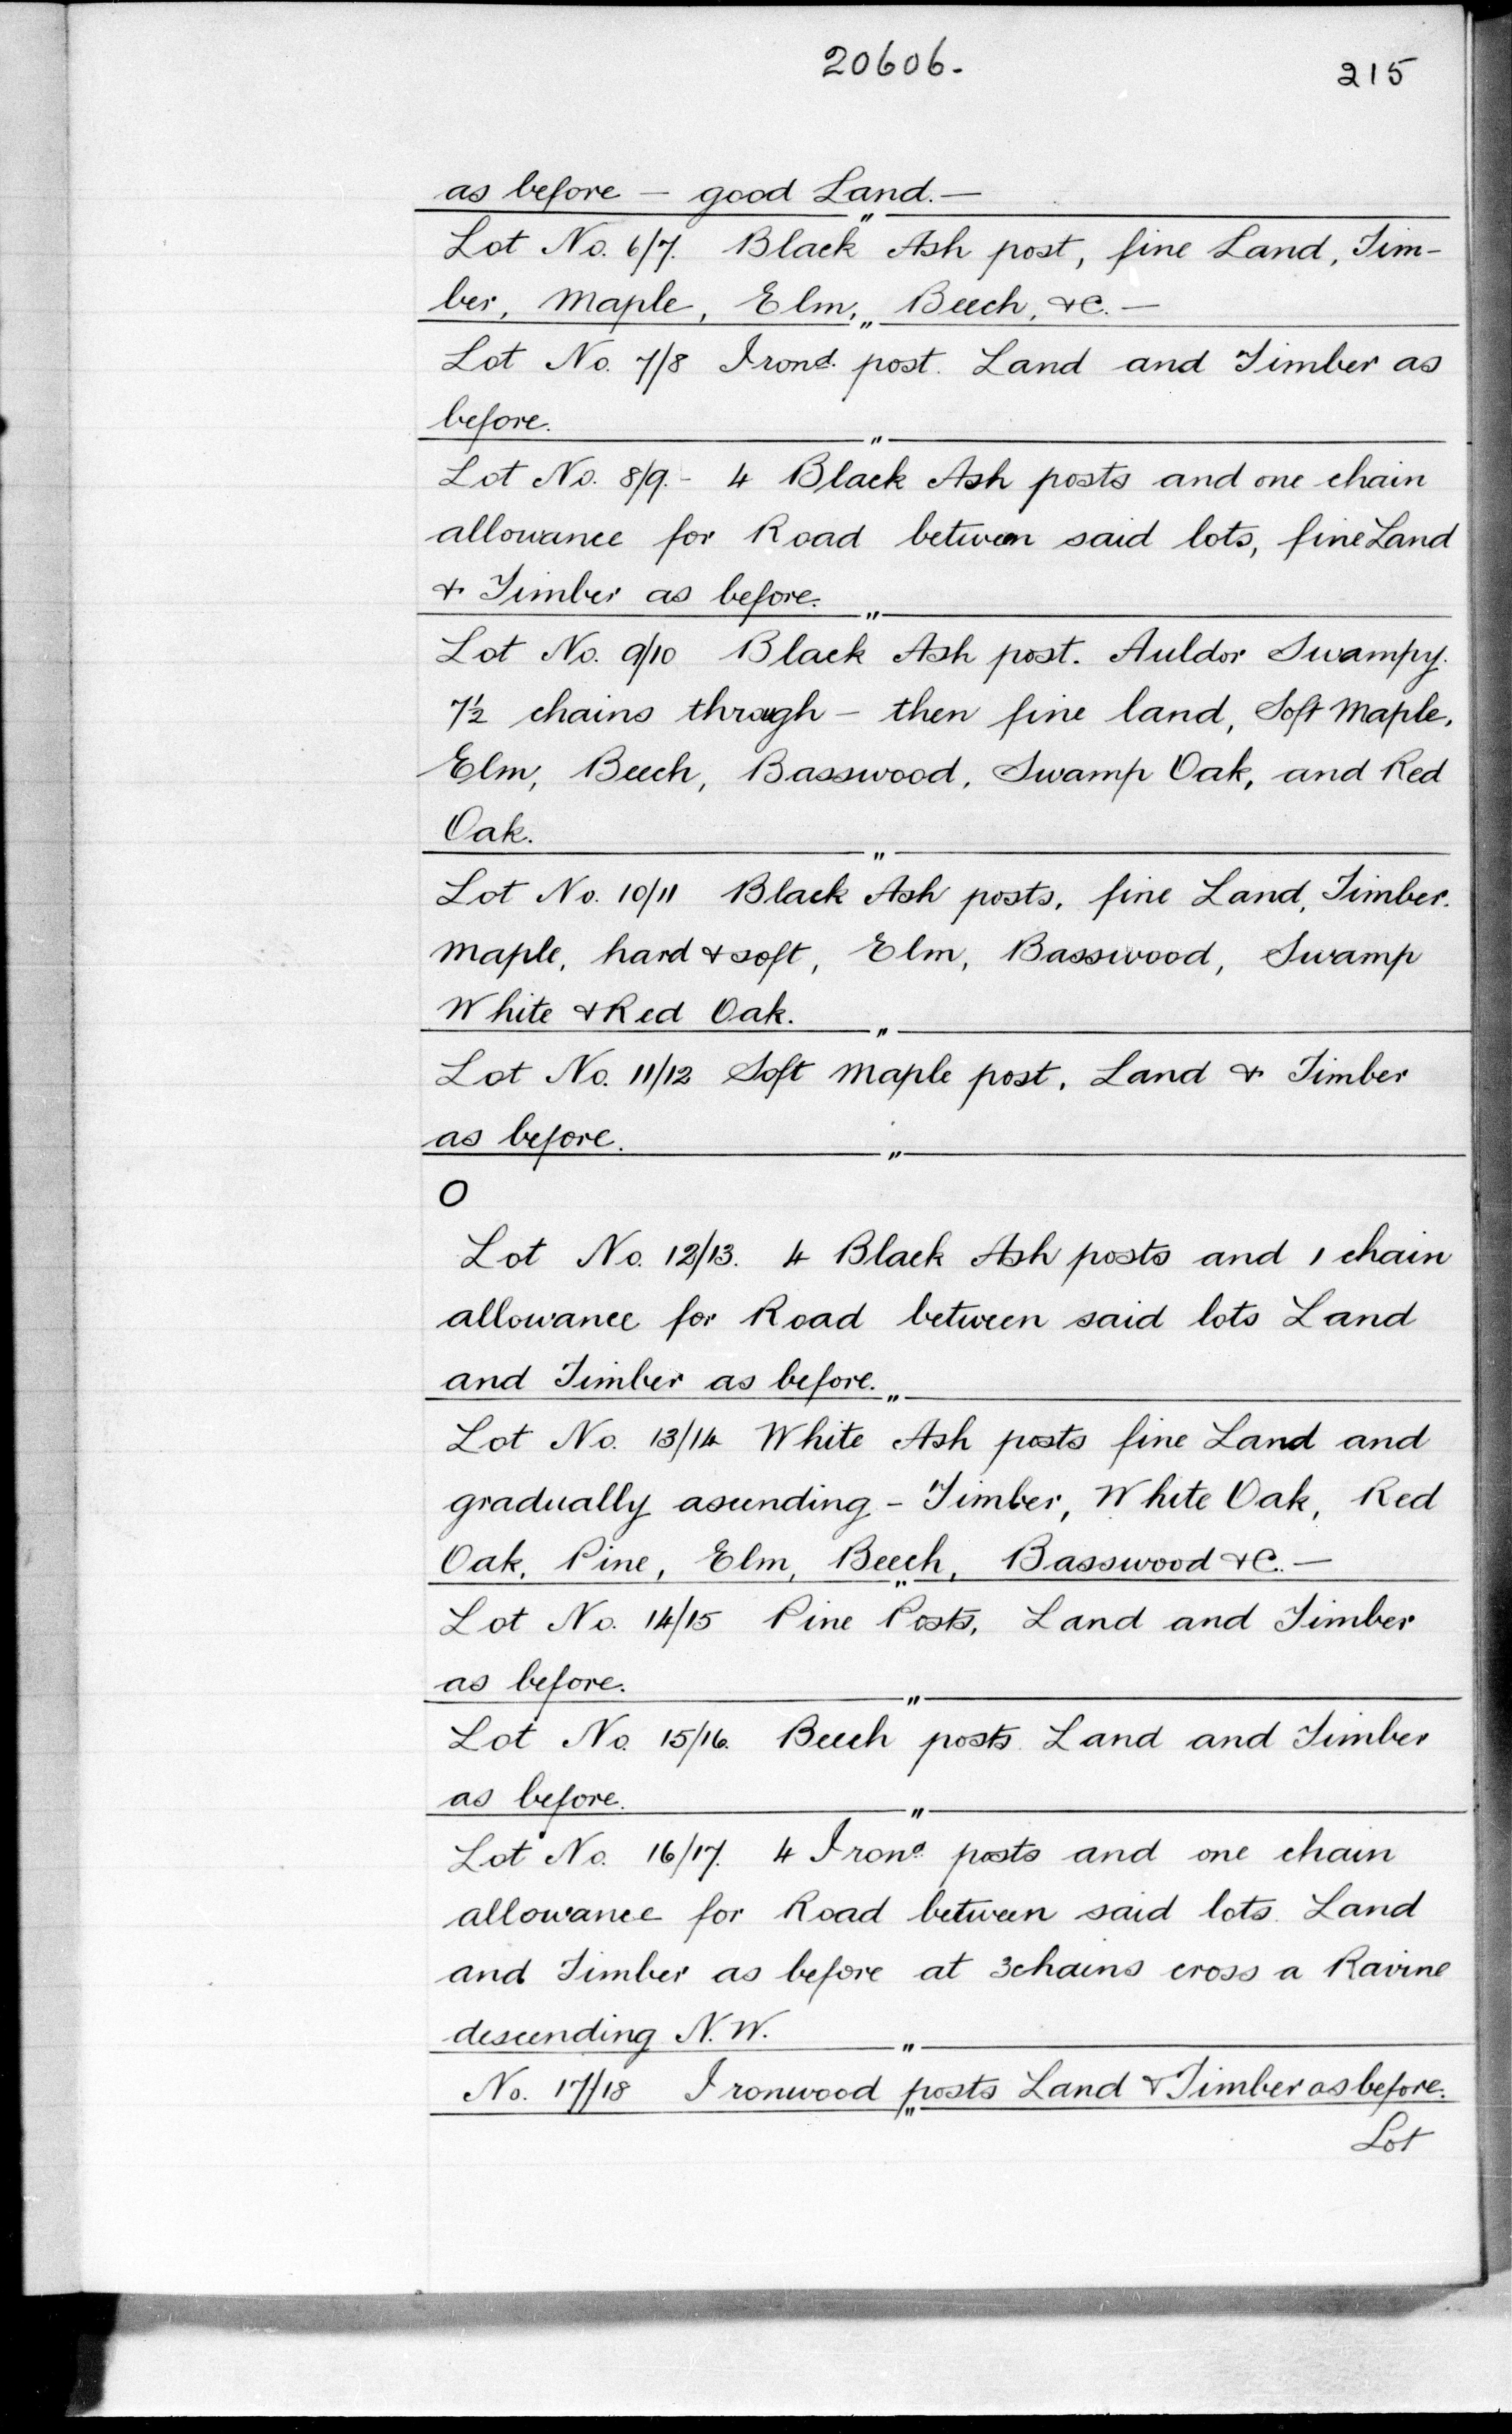 20606.
215
as before — good Land. —
"
Lot No. 6/7. Black Ash post, fine Land, Tim-
ber, Maple, Elm, Beech, &c. —
"
Lot No. 7/8 Irond. post. Land and Timber as
before.
"
Lot No. 8/9. - 4 Black Ash posts and one chain
allowance for Road between said lots, fine Land
& Timber as before.
"
Lot No. 9/10 Black Ash post. Auldor Swampy.
7½ chains through — then fine land, Soft Maple,
Elm, Beech, Basswood, Swamp Oak, and Red
Oak.
"
Lot No. 10/11 Black Ash posts, fine Land, Timber.
Maple, hard & soft, Elm, Basswood, Swamp
White & Red Oak.
"
Lot No. 11/12 Soft Maple post, Land & Timber
as before.
"
O
Lot No. 12/13. 4 Black Ash posts and 1 chain
allowance for Road between said lots Land
and Timber as before.
"
Lot No. 13/14 White Ash posts fine Land and
gradually ascending - Timber, White Oak, Red
Oak, Pine, Elm, Beech, Basswood &c. —
"
Lot No. 14/15 Pine Posts, Land and Timber
as before.
"
Lot No. 15/16. Beech posts Land and Timber
as before.
"
Lot No. 16/17. 4 Irond. posts and one chain
allowance for Road between said lots. Land
and Timber as before at 3 chains cross a Ravine
descending N.W.
"
No. 17/18 Ironwood posts Land & Timber as before.
"
Lot